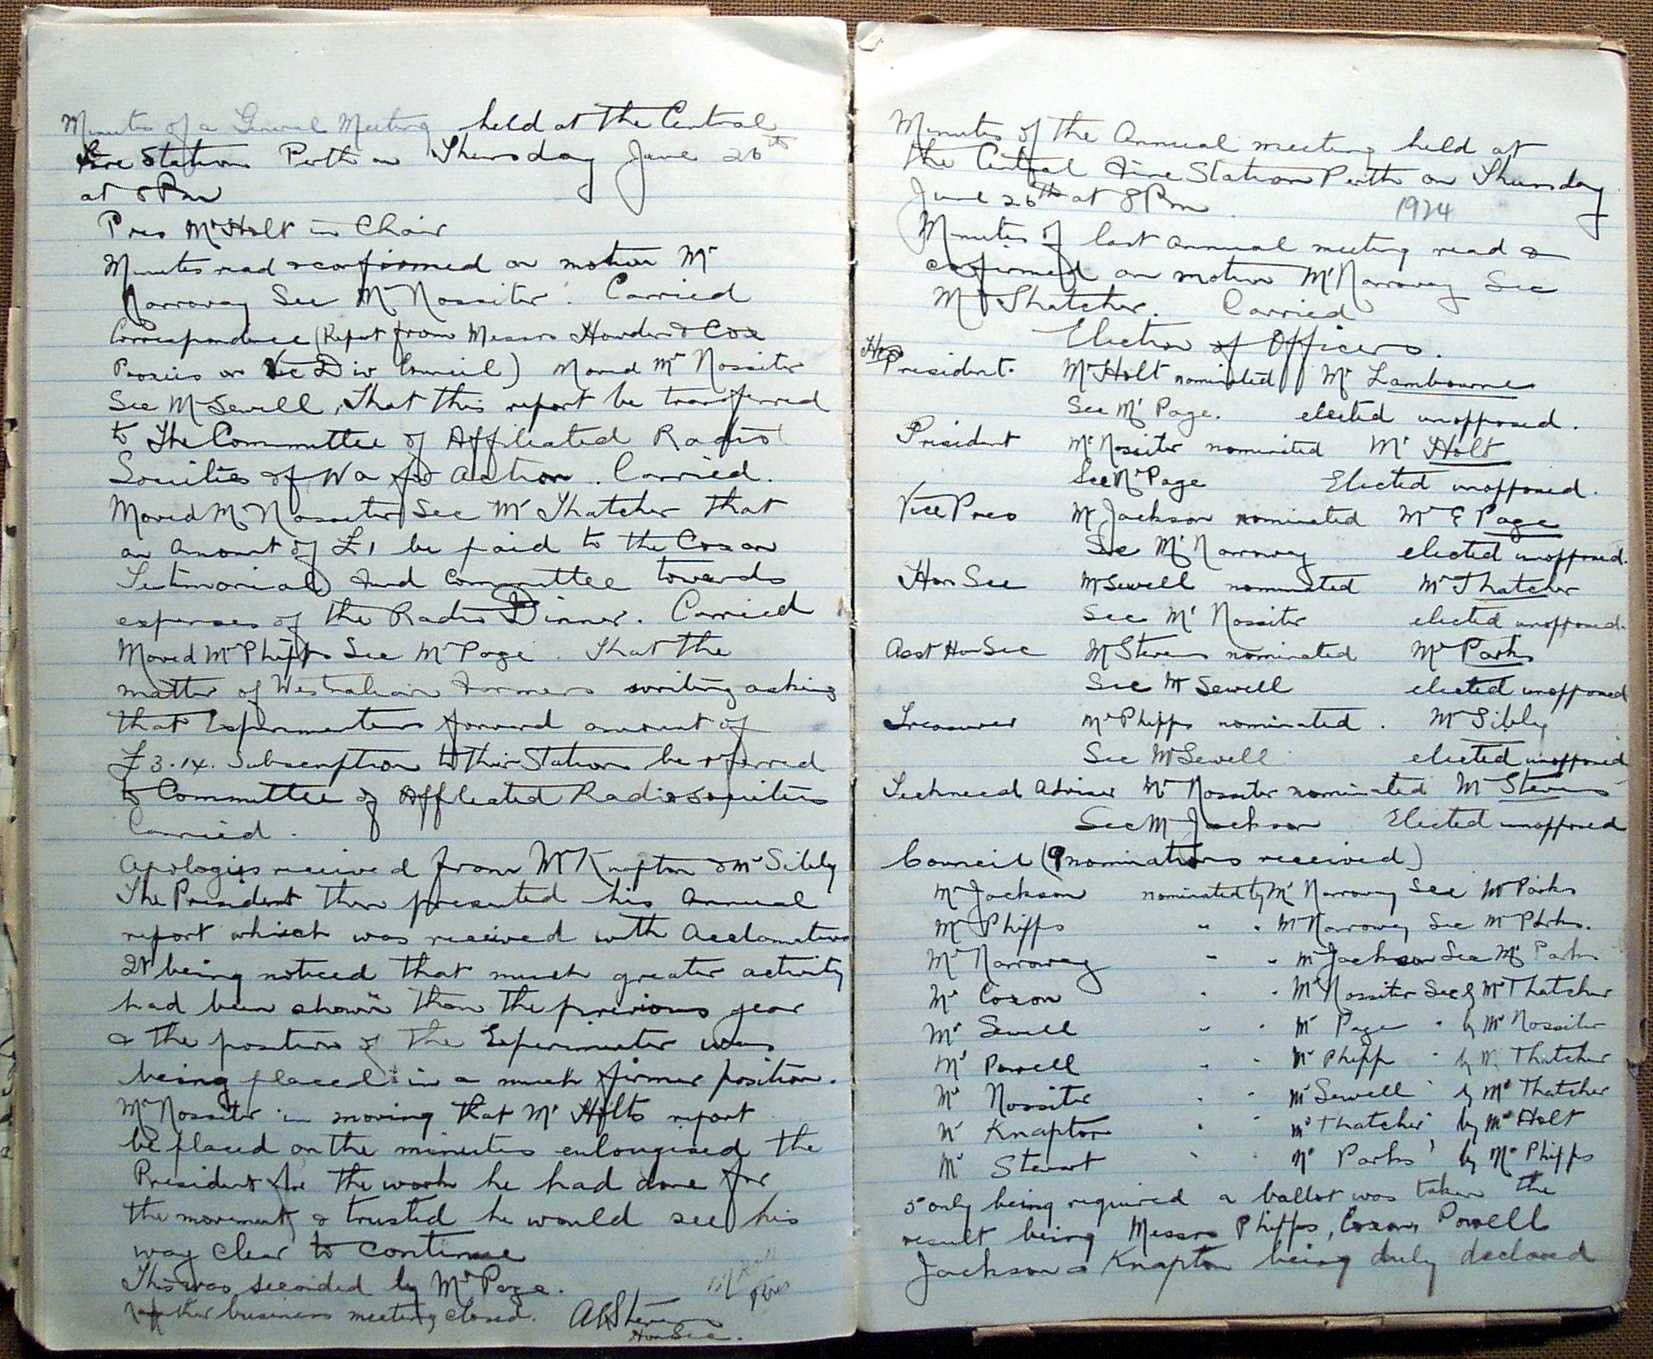 Minutes of a General Meeting held at the Central
Fire Station Perth on Thursday June 26th
at 8 Pm
Pres Mr Holt in Chair
Minutes read & confirmed on motion Mr
Narroway Sec Mr Nossiter. Carried
Correspondence (Report from Messrs Howden & Cox
Proxies on Vic Div Council) Moved Mr Nossiter
Sec Mr Sewell, That this report be transferred
to The Committee of Affiliated Radio
Societies of Wa for Action. Carried.
Moved Mr Nossiter Sec Mr Thatcher that
an Amount of £1 be paid to the Coxon
Testimonial Fund Committee towards
expenses of the Radio Dinner. Carried
Moved Mr Phipps Sec Mr Page. That the
matter of Westralian Farmers writing asking
that Experimenters forward amount of
£3.14. Subscription to their Station be referred
to Committee of Affliated Radio Societies
Carried.
Apologies received from Mr Knapton & Mr Sibly
The President then presented his Annual
report which was received with Acclamation
It being noticed that much greater activity
had been shown than the previous year
& the position of the Experimenter was
being placed in a much firmer position.
Mr Nossiter in moving that Mr Holts report
be placed on the minutes enlougised the
President for the work he had done for
the movement & trusted he would see his
way clear to continue
This was seconded by Mr Page.
No further business meeting closed. A E Stevens
Hon Sec.
Pres
Minutes of the Annual meeting held at
the Central Fire Station Perth on Thursday
June 26th at 8 Pm 1924
Minutes of last Annual meeting read &
confirmed on motion Mr Narroway Sec
Mr Thatcher. Carried
Election of Officers.
Hon President. Mr Holt nominated Mr Lambourne
Sec Mr Page. elected unopposed.
President Mr Nossiter nominated Mr Holt
Sec Mr Page Elected unopposed.
Vice Pres Mr Jackson nominated Mr E Page
Sec Mr Narroway elected unopposed.
Hon Sec Mr Sewell nominated Mr Thatcher
Sec Mr Nossiter elected unopposed.
Asst Hon Sec Mr Stevens nominated Mr Parks
Sec Mr Sewell elected unopposed
Treasurer Mr Phipps nominated. Mr Sibly
Sec Mr Sewell elected unopposed
Technical Adviser Mr Nossiter nominated Mr Stevens
Sec Mr Jackson Elected unopposed
Council (9 nominations received)
Mr Jackson nominated by Mr Narroway Sec Mr Parks
Mr Phipps " " Mr Narroway Sec Mr Parks.
Mr Narroway " " Mr Jackson Sec Mr Parks
Mr Coxon " " Mr Nossiter Sec by Mr Thatcher
Mr Sewell " " Mr Page " by Mr Nossiter
Mr Powell " " Mr Phipps " by Mr Thatcher
Mr Nossiter " " Mr Sewell " by Mr Thatcher
Mr Knapton " " Mr Thatcher " by Mr Holt
Mr Stewart " " Mr Parks " by Mr Phipps
5 only being required a ballot was taken the
result being Messrs Phipps, Coxon, Powell
Jackson & Knapton being duly declared